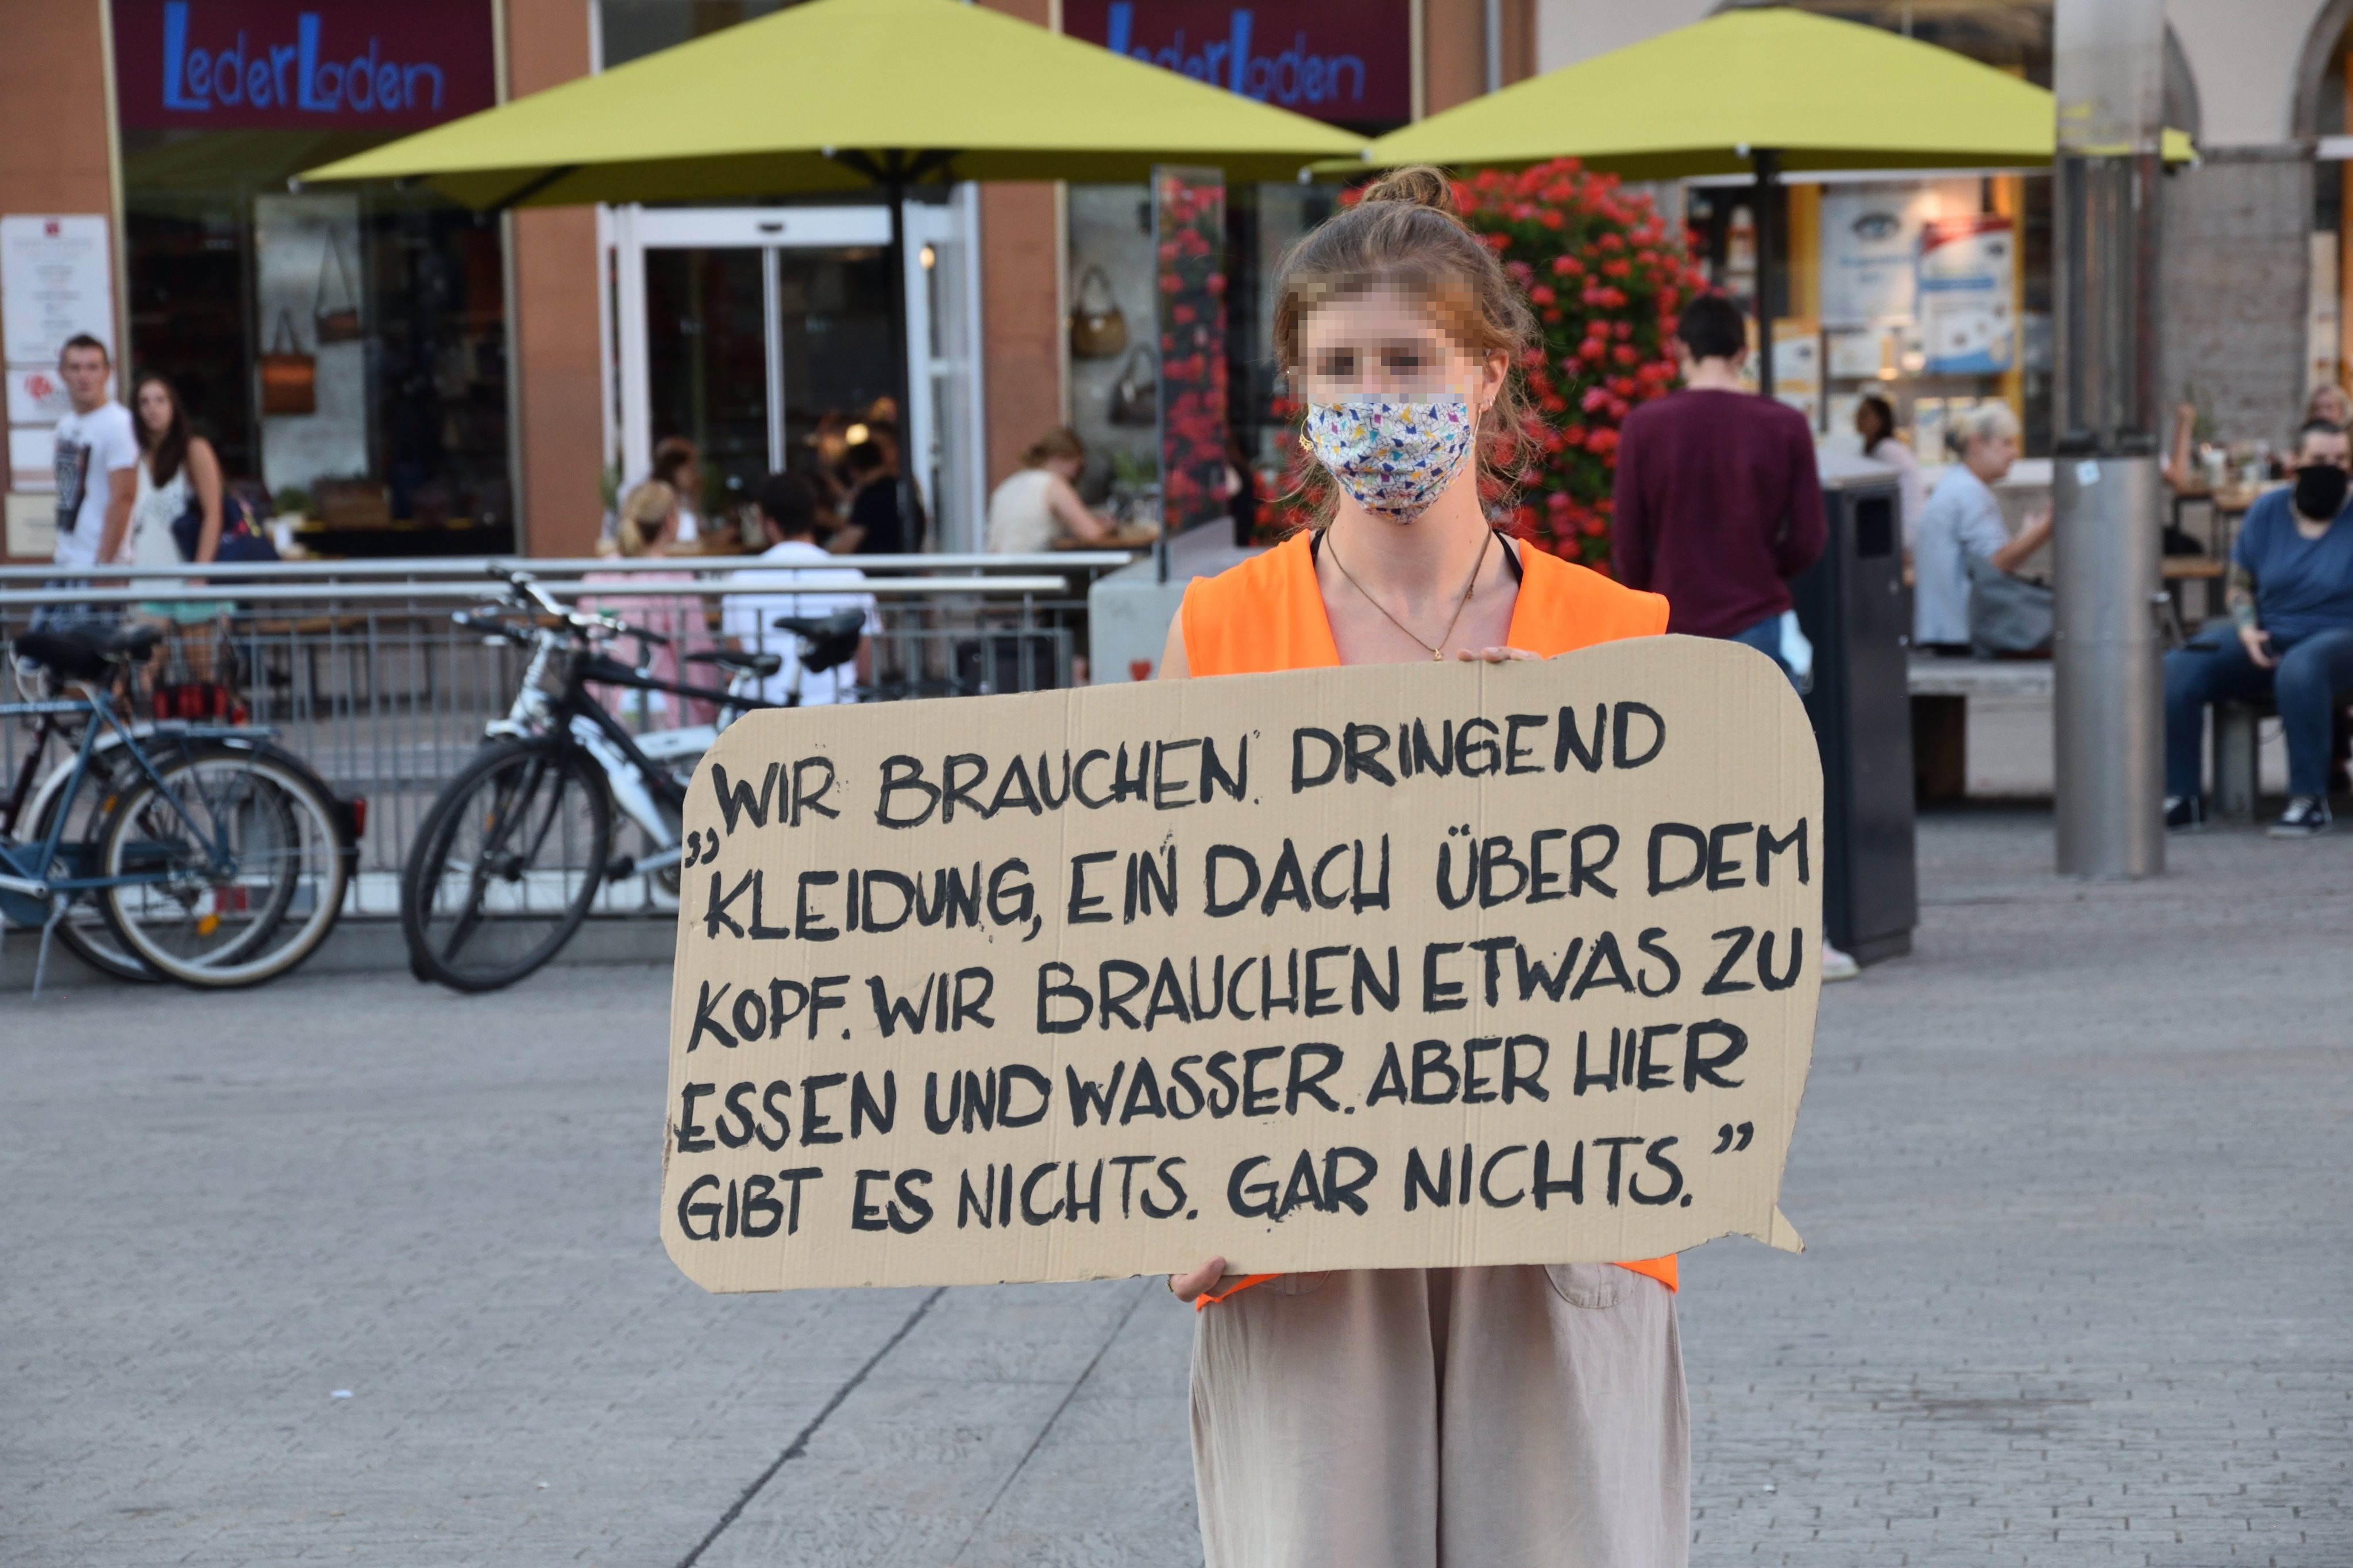 LederLaden
LederLaden
„WIR BRAUCHEN DRINGEND
KLEIDUNG, EIN DACH ÜBER DEM
KOPF. WIR BRAUCHEN ETWAS ZU
ESSEN UND WASSER. ABER HIER
GIBT ES NICHTS. GAR NICHTS.”